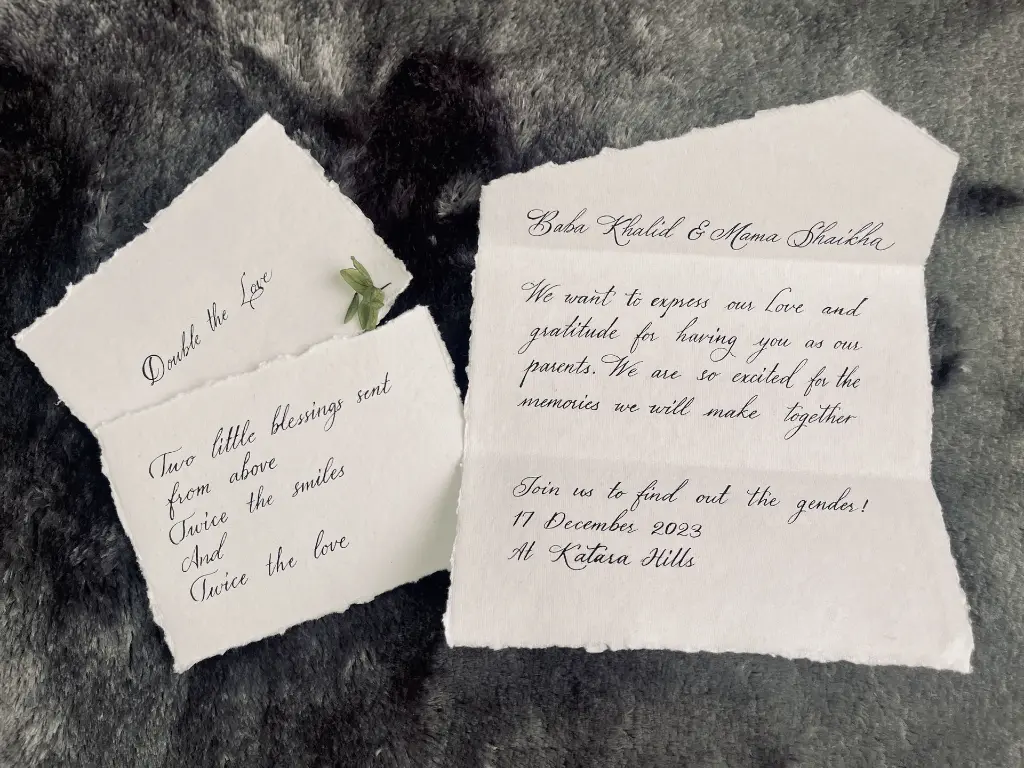 Double the Love
Two little blessings sent
from above
Twice the smiles
And
Twice the love
Baba Khalid & Mama Shaikha
We want to express our Love and
gratitude for having you as our
parents. We are so excited for the
memories we will make together
Join us to find out the gender!
17 December 2023
At Katara Hills